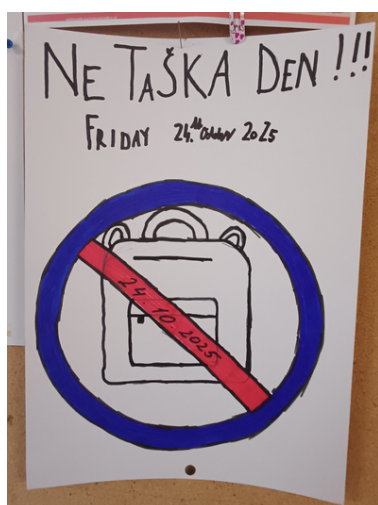 NE TAŠKA DEN !!!
FRIDAY 24.th October 2025
24.10.2025